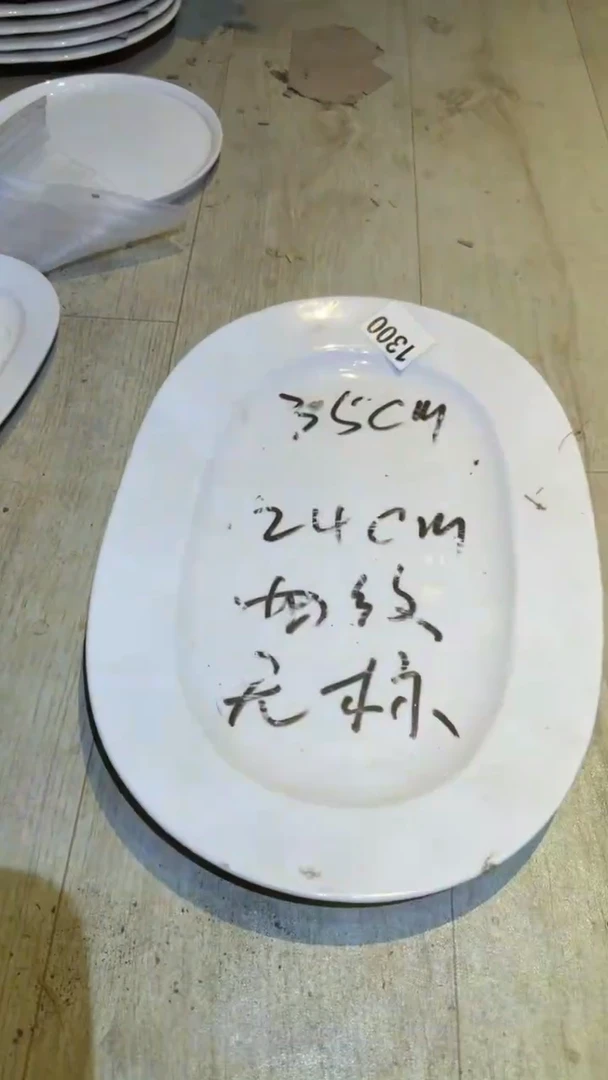 1300
35CM
24CM
纹
无标